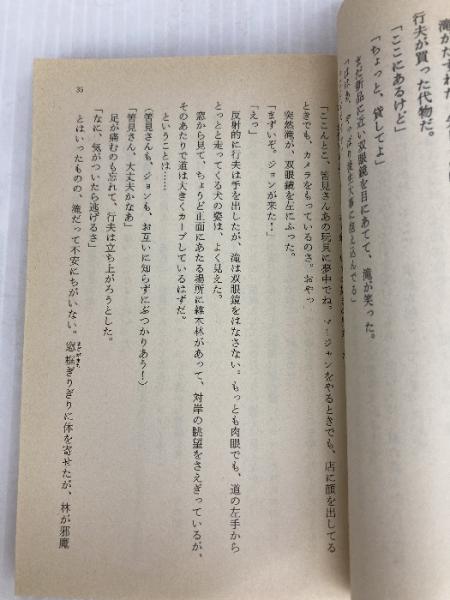 滝がたずねた
行夫が買った代物だ。
「ここにあるけど」
「ちょっと、貸してよ」
まだ新品に近い双眼鏡を目にあてて、滝が笑った。
「ここんとこ、筈見さんあの玩具に夢中でね。マージャンをやるときでも、店に顔を出してる
ときでも、カメラをもっているのさ。おやっ
突然滝が、双眼鏡を左にふった。
「まずいぞ。ジョンが来た!」
「えっ」
反射的に行夫は手を出したが、滝は双眼鏡をはなさない。もっとも肉眼でも、道の左手から
とっとと走ってくる犬の姿は、よく見えた。
窓から見て、ちょうど正面にあたる場所に雑木林があって、対岸の眺望をさえぎっているが、
そのあたりで道は大きくカーブしているはずだ。
ということは……
(筈見さんも、ジョンも、お互いに知らずにぶつかりあう!)
「筈見さん、大丈夫かなあ」
足が痛むのも忘れて、行夫は立ち上がろうとした。
「なに、気がついたら逃げるさ」
とはいったものの、滝だって不安にちがいない。窓框ぎりぎりに体を寄せたが、林が邪魔
まどがまち
35